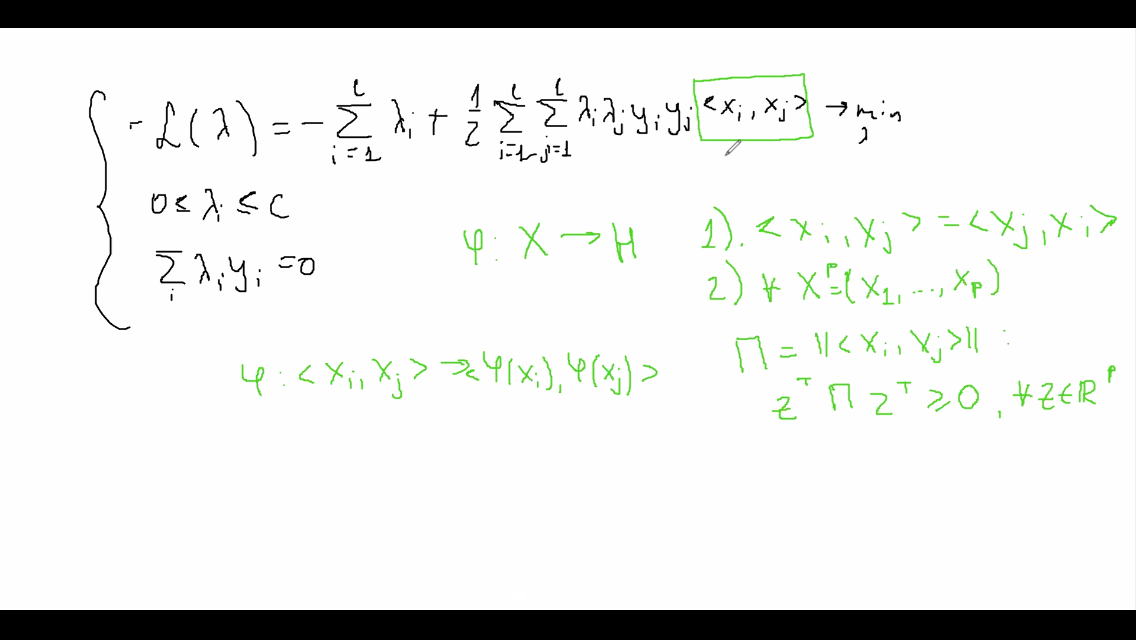 - ℒ(λ) = - ∑_{i=1}^{l} λ_i + 1/2 ∑_{i=1}^{l} ∑_{j=1}^{l} λ_i λ_j y_i y_j <x_i, x_j> → min_λ
0 ≤ λ_i ≤ C
∑_i λ_i y_i = 0
φ: X → H
φ: <x_i, x_j> → <φ(x_i), φ(x_j)>
1). <x_i, x_j> = <x_j, x_i>
2) ∀ X^p = (x_1, ..., x_p)
Π = ||<x_i, x_j>|| :
z^T Π z^T ≥ 0, ∀ z ∈ ℝ^p